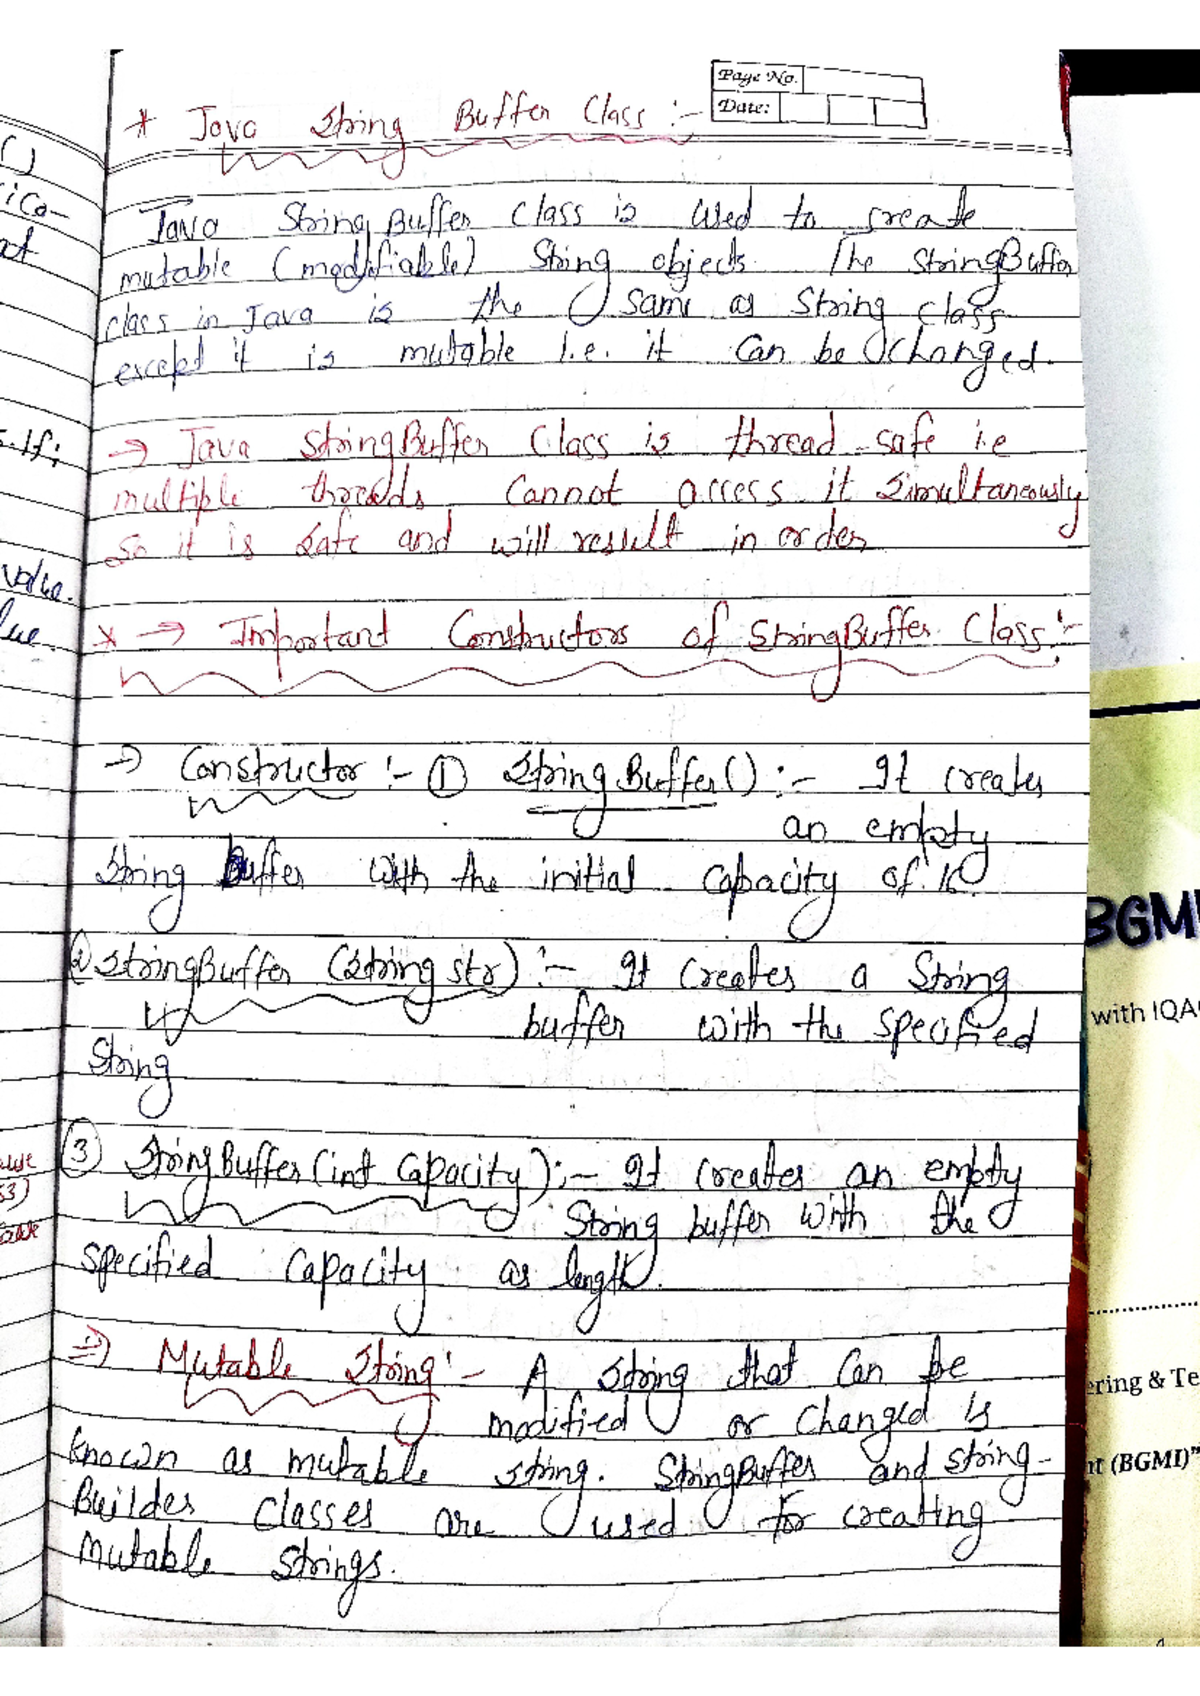 Page No.
Date:
* Java String Buffer Class :-
Java String Buffer Class is used to create
mutable (modifiable) String objects. The StringBuffer
class in Java is the same as String class
except it is mutable i.e. it can be changed.
→ Java StringBuffer Class is thread-safe i.e
multiple threads cannot access it simultaneously
So it is safe and will result in order
* → Important Constructors of StringBuffer Class :-
→ Constructor :- ① String Buffer() :- It creates
an empty
String Buffer with the initial capacity of 16.
② StringBuffer (String str) :- It creates a String
buffer with the specified
String
③ String Buffer (int Capacity) :- It creates an empty
String buffer with the
specified capacity as length.
⇒ Mutable String :- A String that can be
modified or changed is
known as mutable string. StringBuffer and string-
Builder classes are used for creating
mutable strings.
()
ica-
ot
s.If;
value.
lue
s3)
BGMI
with IQA
ering & Te
nt (BGMI)"